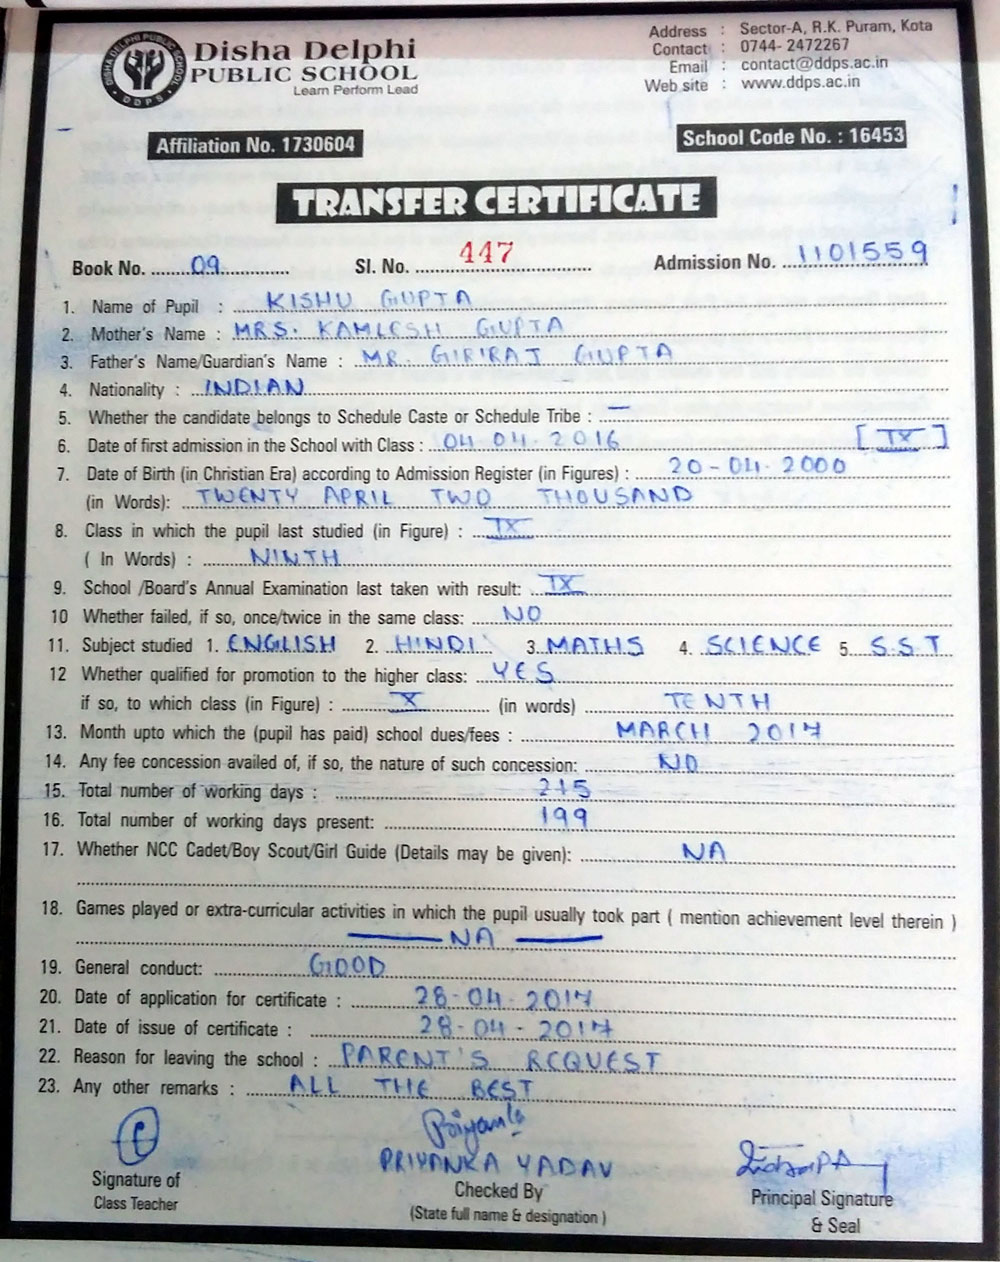 DISHA DELPHI PUBLIC SCHOOL
DDPS
Disha Delphi
PUBLIC SCHOOL
Learn Perform Lead
Address : Sector-A, R.K. Puram, Kota
Contact : 0744- 2472267
Email : contact@ddps.ac.in
Web site : www.ddps.ac.in
Affiliation No. 1730604
School Code No. : 16453
TRANSFER CERTIFICATE
Book No. 09 Sl. No. 447 Admission No. 1101559
1. Name of Pupil : KISHU GUPTA
2. Mother's Name : MRS. KAMLESH GUPTA
3. Father's Name/Guardian's Name : MR. GIRIRAJ GUPTA
4. Nationality : INDIAN
5. Whether the candidate belongs to Schedule Caste or Schedule Tribe : —
6. Date of first admission in the School with Class : 04.04.2016 [IX]
7. Date of Birth (in Christian Era) according to Admission Register (in Figures) : 20-04-2000
(in Words): TWENTY APRIL TWO THOUSAND
8. Class in which the pupil last studied (in Figure) : IX
( In Words) : NINTH
9. School /Board's Annual Examination last taken with result: IX
10 Whether failed, if so, once/twice in the same class: NO
11. Subject studied 1. ENGLISH 2. HINDI 3. MATHS 4. SCIENCE 5. S.S.T
12 Whether qualified for promotion to the higher class: YES
if so, to which class (in Figure) : X (in words) TENTH
13. Month upto which the (pupil has paid) school dues/fees : MARCH 2017
14. Any fee concession availed of, if so, the nature of such concession: NO
15. Total number of working days : 215
16. Total number of working days present: 199
17. Whether NCC Cadet/Boy Scout/Girl Guide (Details may be given): NA
18. Games played or extra-curricular activities in which the pupil usually took part ( mention achievement level therein )
— NA —
19. General conduct: GOOD
20. Date of application for certificate : 28-04-2017
21. Date of issue of certificate : 28-04-2017
22. Reason for leaving the school : PARENT'S REQUEST
23. Any other remarks : ALL THE BEST
Priyanka
PRIYANKA YADAV
Signature of
Class Teacher
Checked By
(State full name & designation )
Principal Signature
& Seal